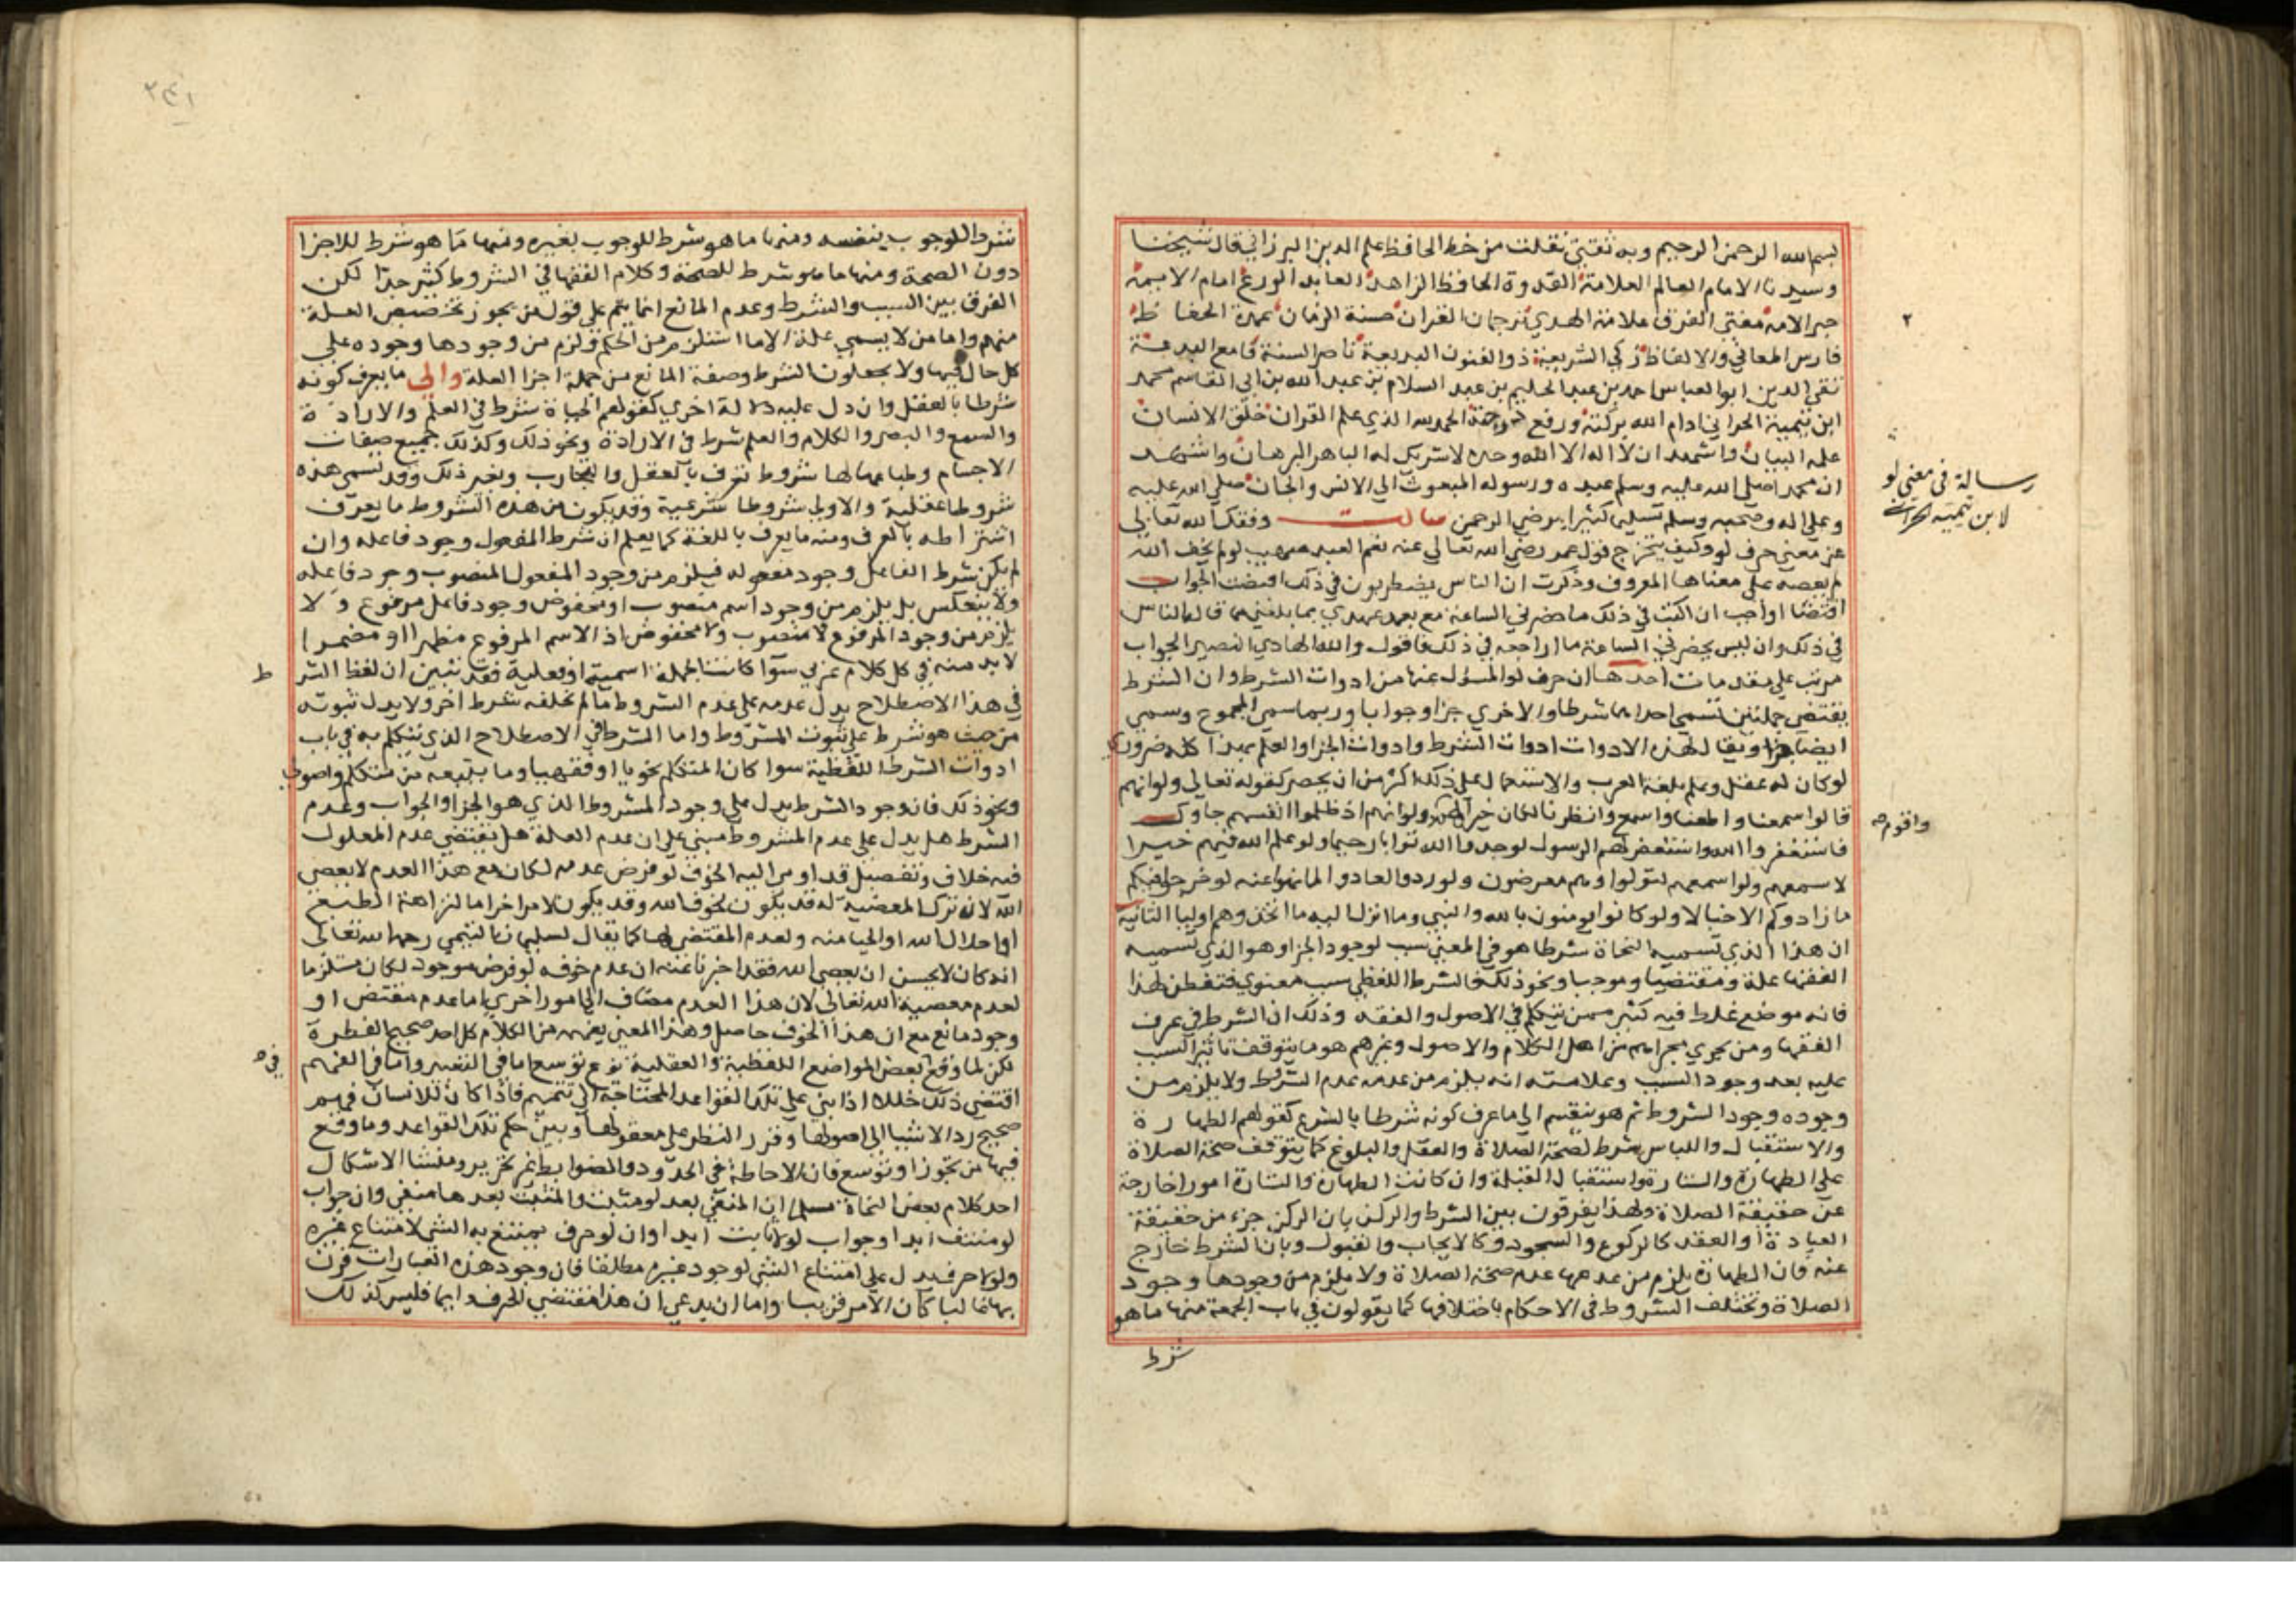 بسم الله الرحمن الرحيم وبه ثقتي نقلت من خط الحافظ علم الدين البرزالي قال شيخنا
وسيدنا الامام العالم العلامة القدوة الحافظ الزاهد العابد الورع امام الايمة
حبر الامة مفتي الفرق علامة الهدي ترجمان القران حسنة الزمان عمدة الحفاظ
فارس المعاني والالفاظ زكي الشريعة ذو الفنون البديعة ناصر السنة قامع البدعة
تقي الدين ابو العباس احمد بن عبد الحليم بن عبد السلام بن عبد الله بن ابي القاسم محمد
ابن تيمية الحراني ادام الله بركته ورفع درجته الحمد لله الذي علم القران خلق الانسان
علمه البيان واشهد ان لا اله الا الله وحده لا شريك له الباهر البرهان واشهد
ان محمدا صلى الله عليه وسلم عبده ورسوله المبعوث الي الانس والجان صلي الله عليه
وعلي اله وصحبه وسلم تسليما كثيرا يرضي الرحمن سالت وفقك الله تعالي
عن معني حرف لو وكيف يتخرج قول عمر رضي الله تعالي عنه نعم العبد صهيب لو لم يخف الله
لم يعصه علي معناها المعروف وذكرت ان الناس يضطربون في ذلك اقتضت الجواب
اقتضا اوجب ان اكتب في ذلك ما حضرني الساعة مع بعد عهدي بما بلغني مما قاله الناس
في ذلك وان ليس يحضرني الساعة ما اراجعه في ذلك فاقول والله الهادي النصير الجواب
مرتب علي مقدمات احدها ان حرف لو المسؤل عنها من ادوات الشرط وان الشرط
يقتضي جملتين تسمي احداهما شرطا والاخري جزا وجوابا وربما سمي المجموع وسمي
ايضا جزا ويقال لهذه الادوات ادوات الشرط وادوات الجزا والعلم بهذا كله ضروري
لو كان له عقل وعلم بلغة العرب والاستعمال علي ذلك اكثر من ان يحصر كقوله تعالي ولو انهم
قالوا سمعنا واطعنا واسمع وانظرنا لكان خيرا لهم ولو انهم اذ ظلموا انفسهم جاوك
فاستغفروا الله واستغفر لهم الرسول لوجدوا الله توابا رحيما ولو علم الله فيهم خيرا
لاسمعهم ولو اسمعهم لتولوا وهم معرضون ولو ردوا لعادوا لما نهوا عنه لو خرجوا فيكم
ما زادوكم الا خبالا ولو كانوا يومنون بالله والنبي وما انزل اليه ما اتخذوهم اوليا الثانية
ان هذا الذي تسميه النحاة شرطا هو في المعني سبب لوجود الجزا وهو الذي تسميه
الفقها علة ومقتضيا وموجبا ونحو ذلك فالشرط اللفظي سبب معنوي فتفطن لهذا
فانه موضع غلط فيه كثير ممن يتكلم في الاصول والفقه وذلك ان الشرط في عرف
الفقها ومن يجري مجراهم من اهل الكلام والاصول وغيرهم هو ما يتوقف تاثير السبب
عليه بعد وجود السبب وعلامته انه يلزم من عدمه عدم المشروط ولا يلزم من
وجوده وجود المشروط ثم هو ينقسم الي ما عرف كونه شرطا بالشرع كقولهم الطهارة
والاستقبال واللباس شرط لصحة الصلاة والعقل والبلوغ كما يتوقف صحة الصلاة
علي الطهارة والستارة واستقبال القبلة وان كانت الطهارة والستارة امورا خارجة
عن حقيقة الصلاة ولهذا يفرقون بين الشرط والركن بان الركن جزء من حقيقة
العبادة او العقد كالركوع والسجود وكالايجاب والقبول وبان الشرط خارج
عنه فان الطهارة يلزم من عدمها عدم صحة الصلاة ولا يلزم من وجودها وجود
الصلاة وتختلف الشروط في الاحكام باختلافها كما يقولون في باب الجمعة منها ما هو
شرط
٢
رسالة في معني لو
لابن تيمية الحراني
واقوم صح
٢٤١
شرط للوجوب بنفسه ومنها ما هو شرط للوجوب بغيره ومنها ما هو شرط للاجزا
دون الصحة ومنها ما هو شرط للصحة وكلام الفقها في الشروط كثير جدا لكن
الفرق بين السبب والشرط وعدم المانع انما يتم علي قول من يجوز تخصيص العلة
منهم واما من لا يسمي علة الا ما استلزم من الحكم ولزم من وجودها وجوده علي
كل حال فيها ولا يجعلون الشرط وصفة المانع من جملة اجزا العلة والي ما يعرف كونه
شرطا بالعقل وان دل عليه دلالة اخري كقولهم الحياة شرط في العلم والارادة
والسمع والبصر والكلام والعلم شرط في الارادة ونحو ذلك وكذلك جميع صفات
الاجسام وطباعها لها شروط تعرف بالعقل والتجارب وبغير ذلك وقد تسمي هذه
شروطا عقلية والاولي شروطا شرعية وقد يكون من هذه الشروط ما يعرف
اشتراطه بالعرف ومنه ما يعرف باللغة كما يعلم ان شرط المفعول وجود فاعله وان
لم يكن شرط الفاعل وجود مفعوله فيلزم من وجود المفعول المنصوب وجود فاعله
ولا ينعكس بل يلزم من وجود اسم منصوب او مخفوض وجود فاعل مرفوع ولا
يلزم من وجود المرفوع لا منصوب ولا مخفوض اذ الاسم المرفوع مظهرا او مضمرا
لا بد منه في كل كلام عربي سوا كانت الجملة اسمية او فعلية فقد تبين ان لفظ الشر
ط
في هذا الاصطلاح يدل عدمه علي عدم المشروط ما لم يخلفه شرط اخر ولا يدل ثبوته
من حيث هو شرط علي ثبوت المشروط واما الشرط في الاصطلاح الذي نتكلم به في باب
ادوات الشرط اللفظية سوا كان المتكلم نحويا او فقيها وما يتبعه من متكلم واصولي
ونحو ذلك فان وجود الشرط يدل علي وجود المشروط الذي هو الجزا والجواب وعدم
الشرط هل يدل علي عدم المشروط مبني علي ان عدم العلة هل يقتضي عدم المعلول
فيه خلاف وتفصيل قد اومي اليه الخوف لو فرض عدمه لكان مع هذا العدم لا يعصي
الله لان ترك المعصية له قد يكون لخوف الله وقد يكون لامر اخر اما لنزاهة الطبع
او اجلال الله او الحيا منه ولعدم المقتضي لها كما يقال لسليمان التيمي رحمه الله تعالي
انه كان لا يحسن ان يعصي الله فقد اخبرنا عنه ان عدم خوفه لو فرض موجودا لكان مستلزما
لعدم معصية الله تعالي لان هذا العدم مضاف الي امور اخري اما عدم مقتض او
وجود مانع مع ان هذا الخوف حاصل وهذا المعني يفهمه من الكلام كل احد صحيح الفطرة
لكن لما وقع بعض المواضع اللفظية والعقلية نوع توسع اما في التعبير واما في الفهم
في صح
اقتضي ذلك خللا اذا بني علي تلك القواعد المحتاجة الي تتميم فاذا كان للانسان فهم
صحيح رد الاشيا الي اصولها وقرر النظر علي معقولها وبين حكم تلك القواعد وما وقع
فيها من تجوز او توسع فان الاحاطة في الحدود والضوابط غير تحرير ومنشا الاشكال
احد كلام بعض النحاة مسلما ان المنفي بعد لو مثبت والمثبت بعدها منفي وان جواب
لو منتف ابدا وجواب لولا ثابت ابدا وان لو حرف يمتنع به الشي لامتناع غيره
ولولا حرف يدل علي امتناع الشي لوجود غيره مطلقا فان وجود هذه العبارات قرن
بها غالبا كان الامر قريبا واما ان يدعي ان هذا مقتضي الحرف دايما فليس كذلك